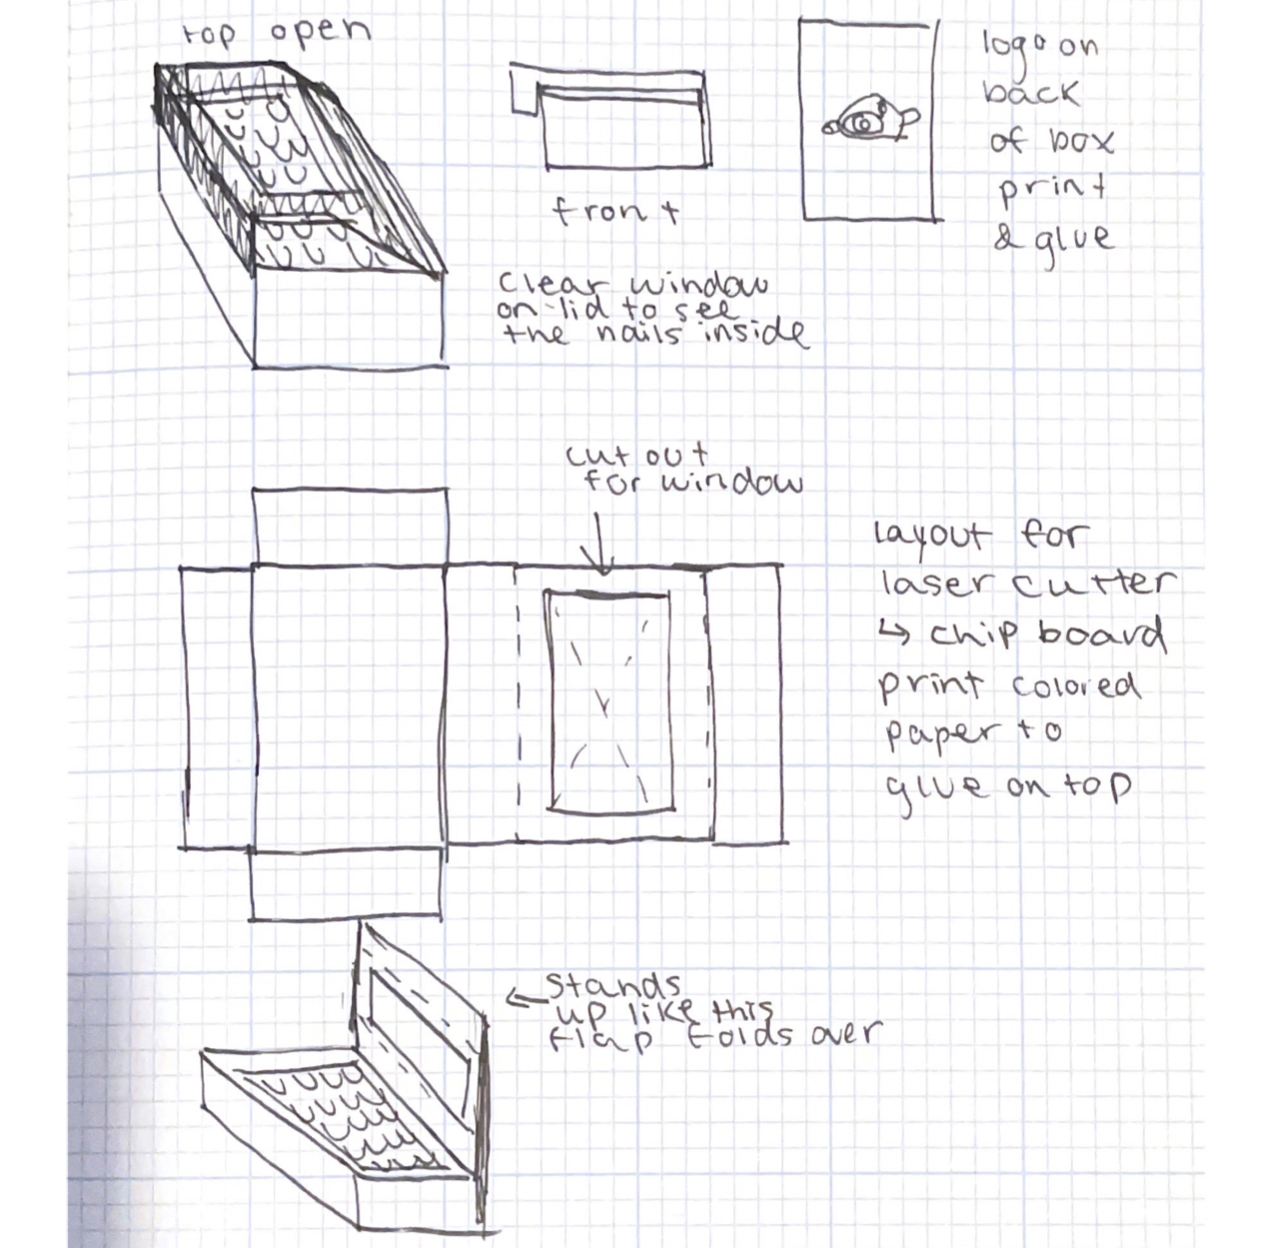 top open
front
logo on
back
of box
print
& glue
clear window
on lid to see
the nails inside
cut out
for window
layout for
laser cutter
↳ chip board
print colored
paper to
glue on top
← stands
up like this
flap folds over